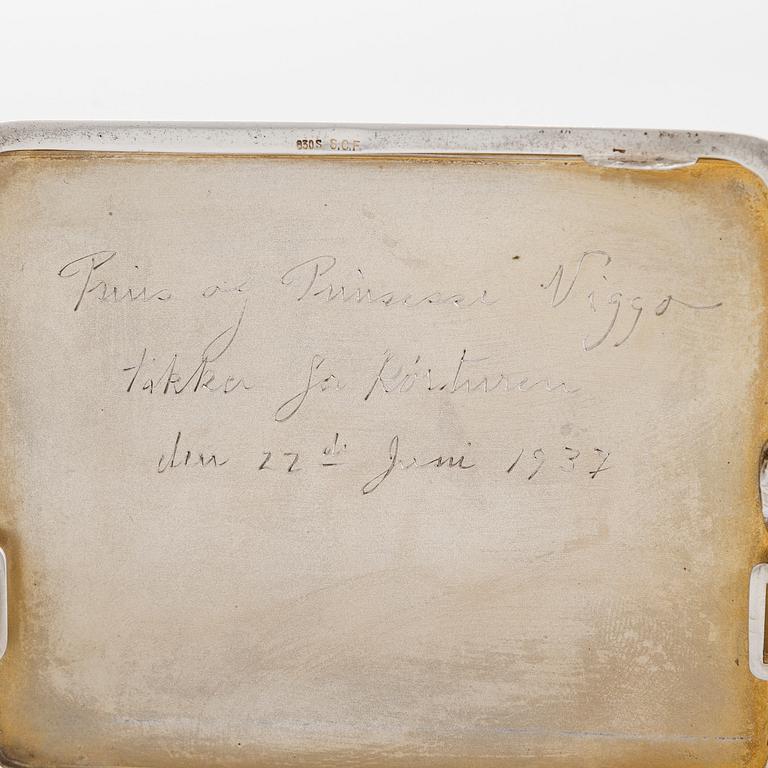 830S S.C.F.
Prins og Prinsesse Viggo
takker for Kørturen
den 22di Juni 1937